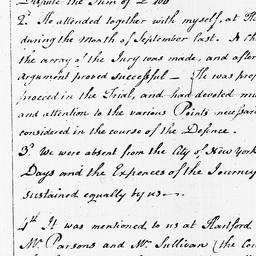 Dispute the Sum of £ 200
2d. He attended together with myself, at
during the Month of September last. A
the array of the Jury was made, and after
Argument proved successful — He was
proceed in the Trial, and had devoted
and attention to the various Points
considered in the course of the Defence.
3d. We were absent from the City of New York
Days and the Expences of the Journey
sustained equally by us —
4th It was mentioned to us at Hartford
Mr. Parsons and Mr. Sullivan (the